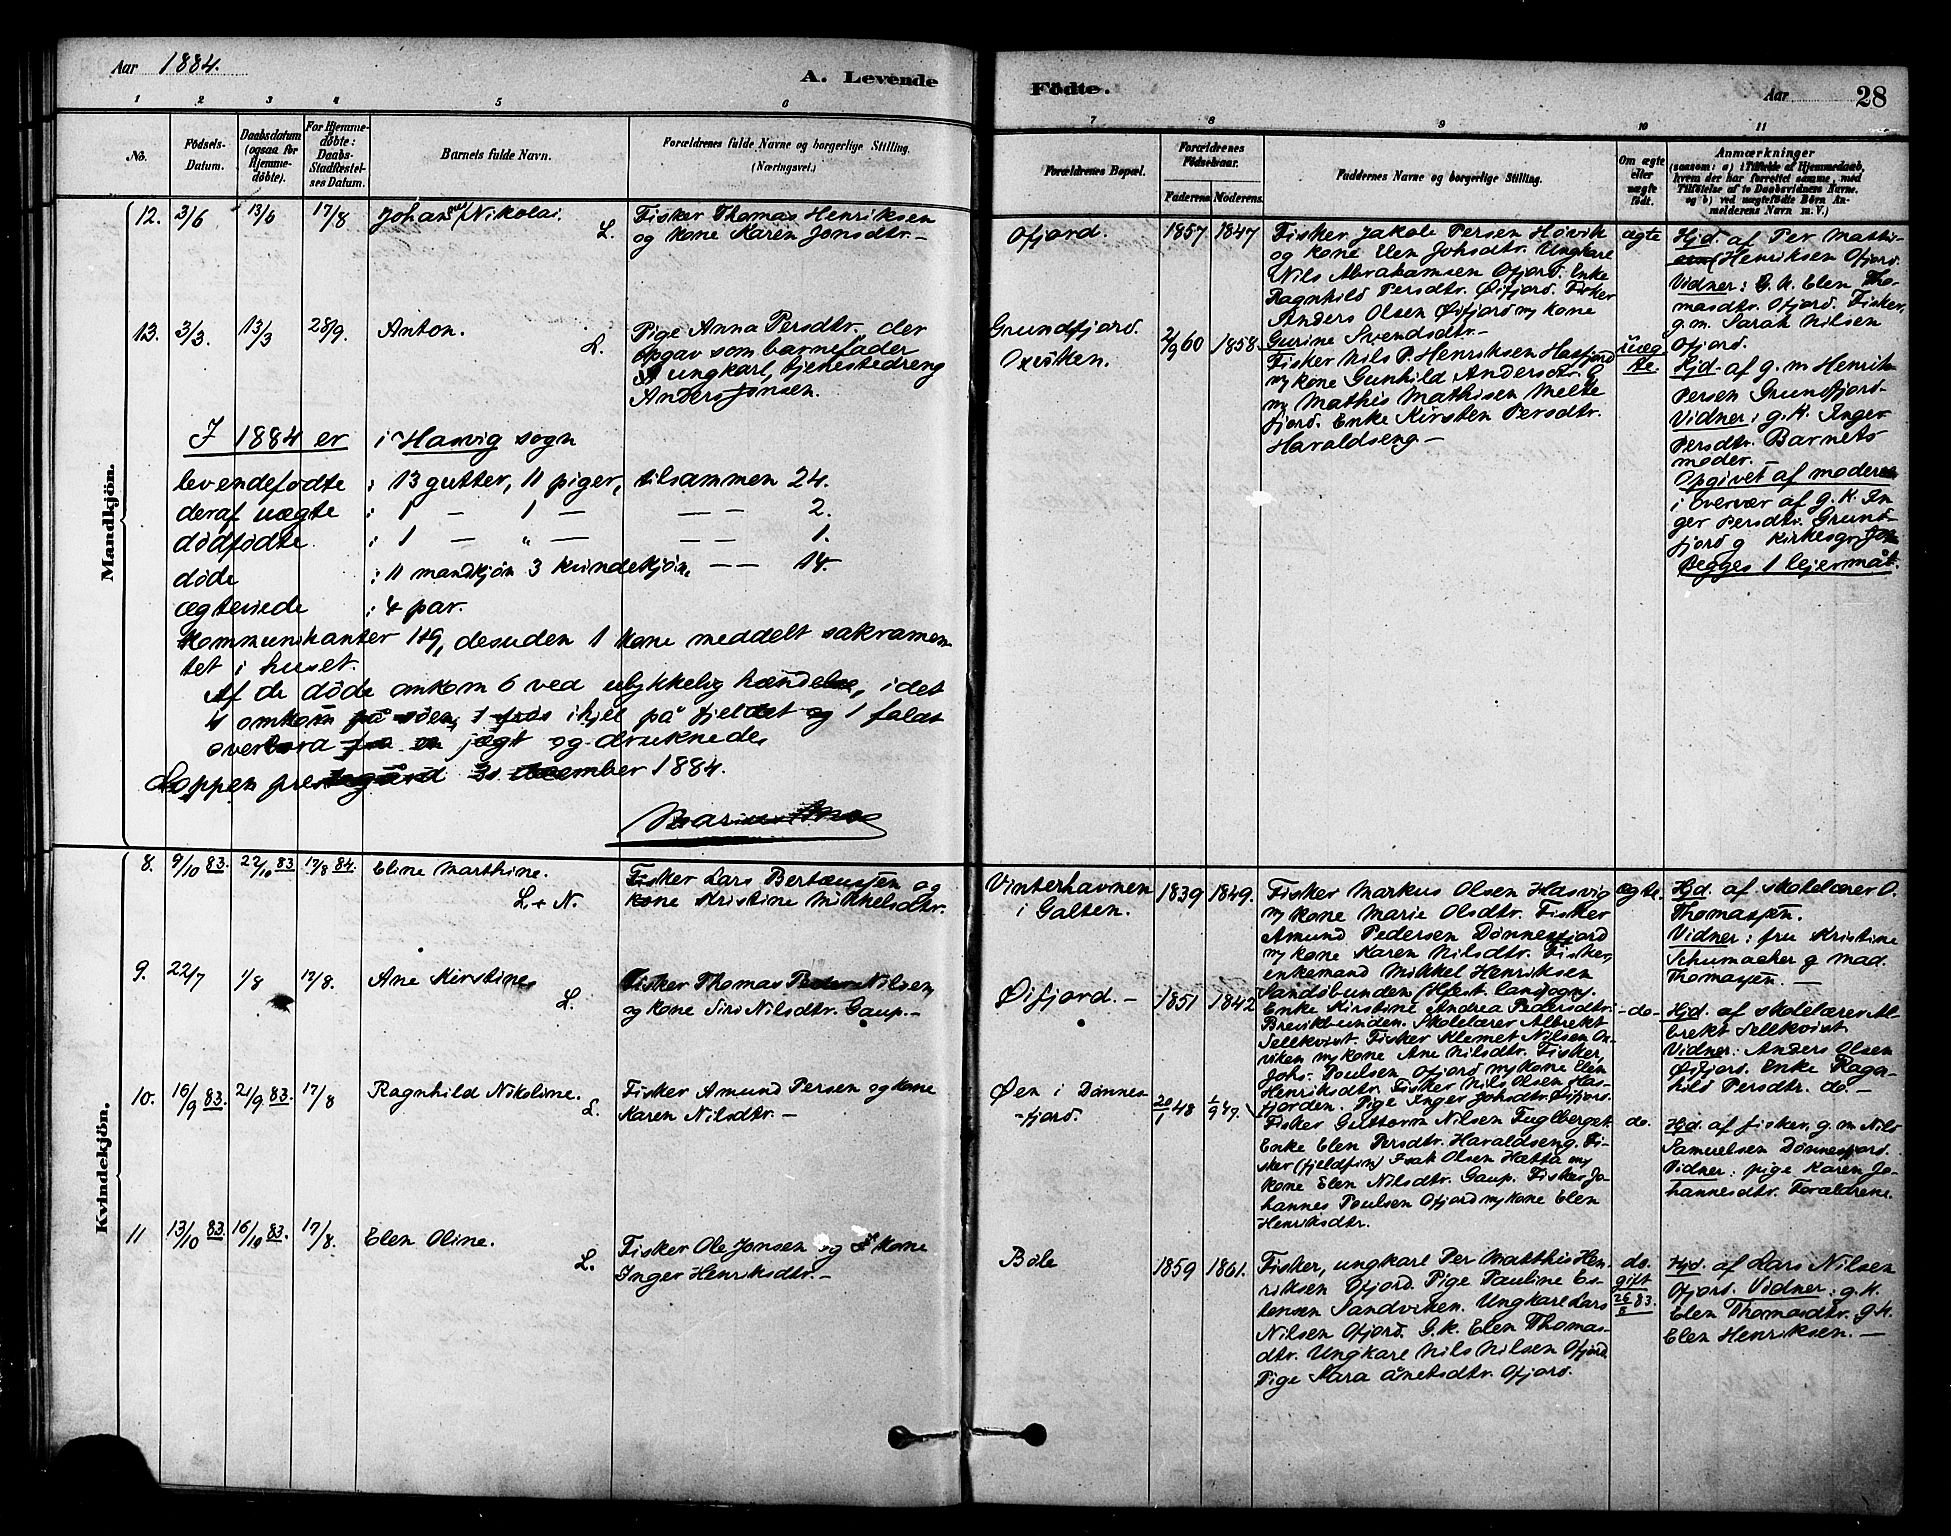 Aar 1884.
A. Levende
Födte.
Aar
28
1 2 3 4 5 6
7 8 9 10 11
No.
Födsels-
Datum.
Daabsdatum
(ogsaa for
Hjemme-
döbte).
For Hjemme-
döbte:
Daabs-
Stadfæstel-
ses Datum.
Barnets fulde Navn.
Forældrenes fulde Navne og borgerlige Stilling.
(Næringsvei.)
Forældrenes Bopæl.
Forældrenes
Födselsaar.
Faderens. Moderens.
Faddernes Navne og borgerlige Stilling.
Om ægte
eller
uægte
födt.
Anmærkninger
(saasom: a) i Tilfælde af Hjemmedaab,
hvem der har forrettet samme, med
Tilföielse af to Daabsvidners Navne.
og b) ved uægtefödte Börn An-
melderens Navn m. V.)
Mandkjön.
12. 3/6 13/6 17/8 Johan Nikolai. L.
Fisker Thomas Henriksen
og kone Karen Jonsdtr. -
Ofjord. 1857. 1847
Fisker Jakob Persen Hovik
og kone Elen Johsdtr. Ungkarl
Nils Abrahamsen Ofjord. Enke
Ragnhild Persdtr. Øifjord. Fisker
Anders Olsen Øifjord m/ kone
Gurine Svendsdtr. -
ægte
Hjd. af Per Matthis-
Henriksen Ofjord.
Vidner: G. K. Elen Tho-
masdtr. Ofjord. Fisker,
g.m. Sarak Nilsen
Ofjord.
13. 3/3. 13/3 28/9. Anton. L.
Pige Anna Persdtr. der
opgav som barnefader
ungkarl, tjenestedreng
Anders Jonsen.
Grundfjord.
2/9 60 1858.
Fisker Nils P. Henriksen Hasfjord
m/ kone Gunhild Andersdtr. G
m/ Mathis Mathisen Melte
fjord. Enke Kirsten Persdtr.
Haraldseng -
uæg
te.
Hjd. af g. m Henrik
Persen Grundfjord.
Vidner: g. K. Inger
Persdtr. Barnets
moder.
Opgivet af moderen
i overvær af g. K. In
ger Persdtr. Grund-
fjord g kirkesgr. Jon
Begges 1 lejermål.
I 1884 er i Hasvig sogn
levendefødte : 13 gutter, 11 piger, tilsammen 24.
deraf uægte : 1 — 1 — — — 2.
dødfødte. : 1 — " — — — 1.
døde : 11 mandkjön 3 kvindekjön, — — 14.
ægteviede : 4 par.
Kommunikanter 149, desuden 1 kone meddelt sakramen-
tet i huset.
Af de døde omkom 6 ved ulykkelig hændelse, i det
4 omkom på søen, 1 frøs ihjel på fjeldet og 1 faldt
overbord fra en jægt og druknede.
Loppen prestegård 31 december 1884.
Kvindekjön.
8. 9/10 83. 22/10 83 17/8 84. Eline Marthine. L + N.
Fisker Lars Bertæussen og
kone Kristine Mikkelsdtr.
Vinterhavnen
i Galten.
1839 1849.
Fisker Markus Olsen Hasvig
m/ kone Marie Olsdtr. Fisker
Amund Pedersen Dønnesfjord
m/ kone Karen Nilsdtr. Fisker,
enkemand Mikkel Henriksen
Sandsbunden (Hfest. landsogn).
ægte.
Hjd. af skolelærer O.
Thomassen.
Vidner: fru Kristine
Schumacher g mad.
Thomassen. —
9. 22/7 1/8 17/8. Ane Kirstine L.
Fisker Thomas Nilsen
og kone Siri Nilsdtr. Gaup. -
Øifjord. -
1851 1842
Enke Kirstine Andrea Pedersdtr.
Brevikbunden. Skolelærer Albrekt
Sellkvist. Fisker Klemet Nilsen Ox-
viken m/ kone Ane Nilsdtr. Fisker,
Johs. Poulsen Ofjord m/ kone Elen
Henriksdtr. Fisker Nils Olsen Has-
fjorden. Pige Inger Johsdtr. Øifjord.
- do -
Hjd. af skolelærer Al-
brekt Sellkvist
Vidner: Anders Olsen
Øifjord. Enke Ragn-
hild Persdtr. do —
10. 16/9 83. 21/9 83. 17/8 Ragnhild Nikoline. L.
Fisker Amund Persen og kone
Karen Nilsdtr. —
Øen i Dønnes-
-fjord.
20/1 48 1/9 47.
Fisker Guttorm Nilsen Fuglberget.
Enke Elen Persdtr. Haraldseng. Fi-
sker (fjeldfin) Isak Olsen Hætta m/
kone Elen Nilsdtr. Gaup. Fisker Jo-
hannes Poulsen Ofjord m/ kone Elen
Henriksdtr.
do.
Hjd. af fisker, g. m Nils
Samuelsen Dønnesfjord.
Vidner: pige Karen Jo-
hannesdtr. Forældrene.
11 13/10 83 16/10 83. 17/8. Elen Oline. L.
Fisker Ole Jonsen og kone
Inger Henriksdtr. -
Bøle
1859 1861.
Fisker, ungkarl Per Matthis Hen-
riksen Ofjord. Pige Pauline Es-
tensen Sandviken. Ungkarl Lars
Nilsen Ofjord. G. k. Elen Thomas-
dtr. Ungkarl Nils Nilsen Ofjord
Pige Sara Ånetsdtr. Ofjord.
do.
gift
26/8 83.
Hjd. af Lars Nilsen
Ofjord. Vidner: g. K.
Elen Thomasdtr. g. k.
Elen Henriksen. —